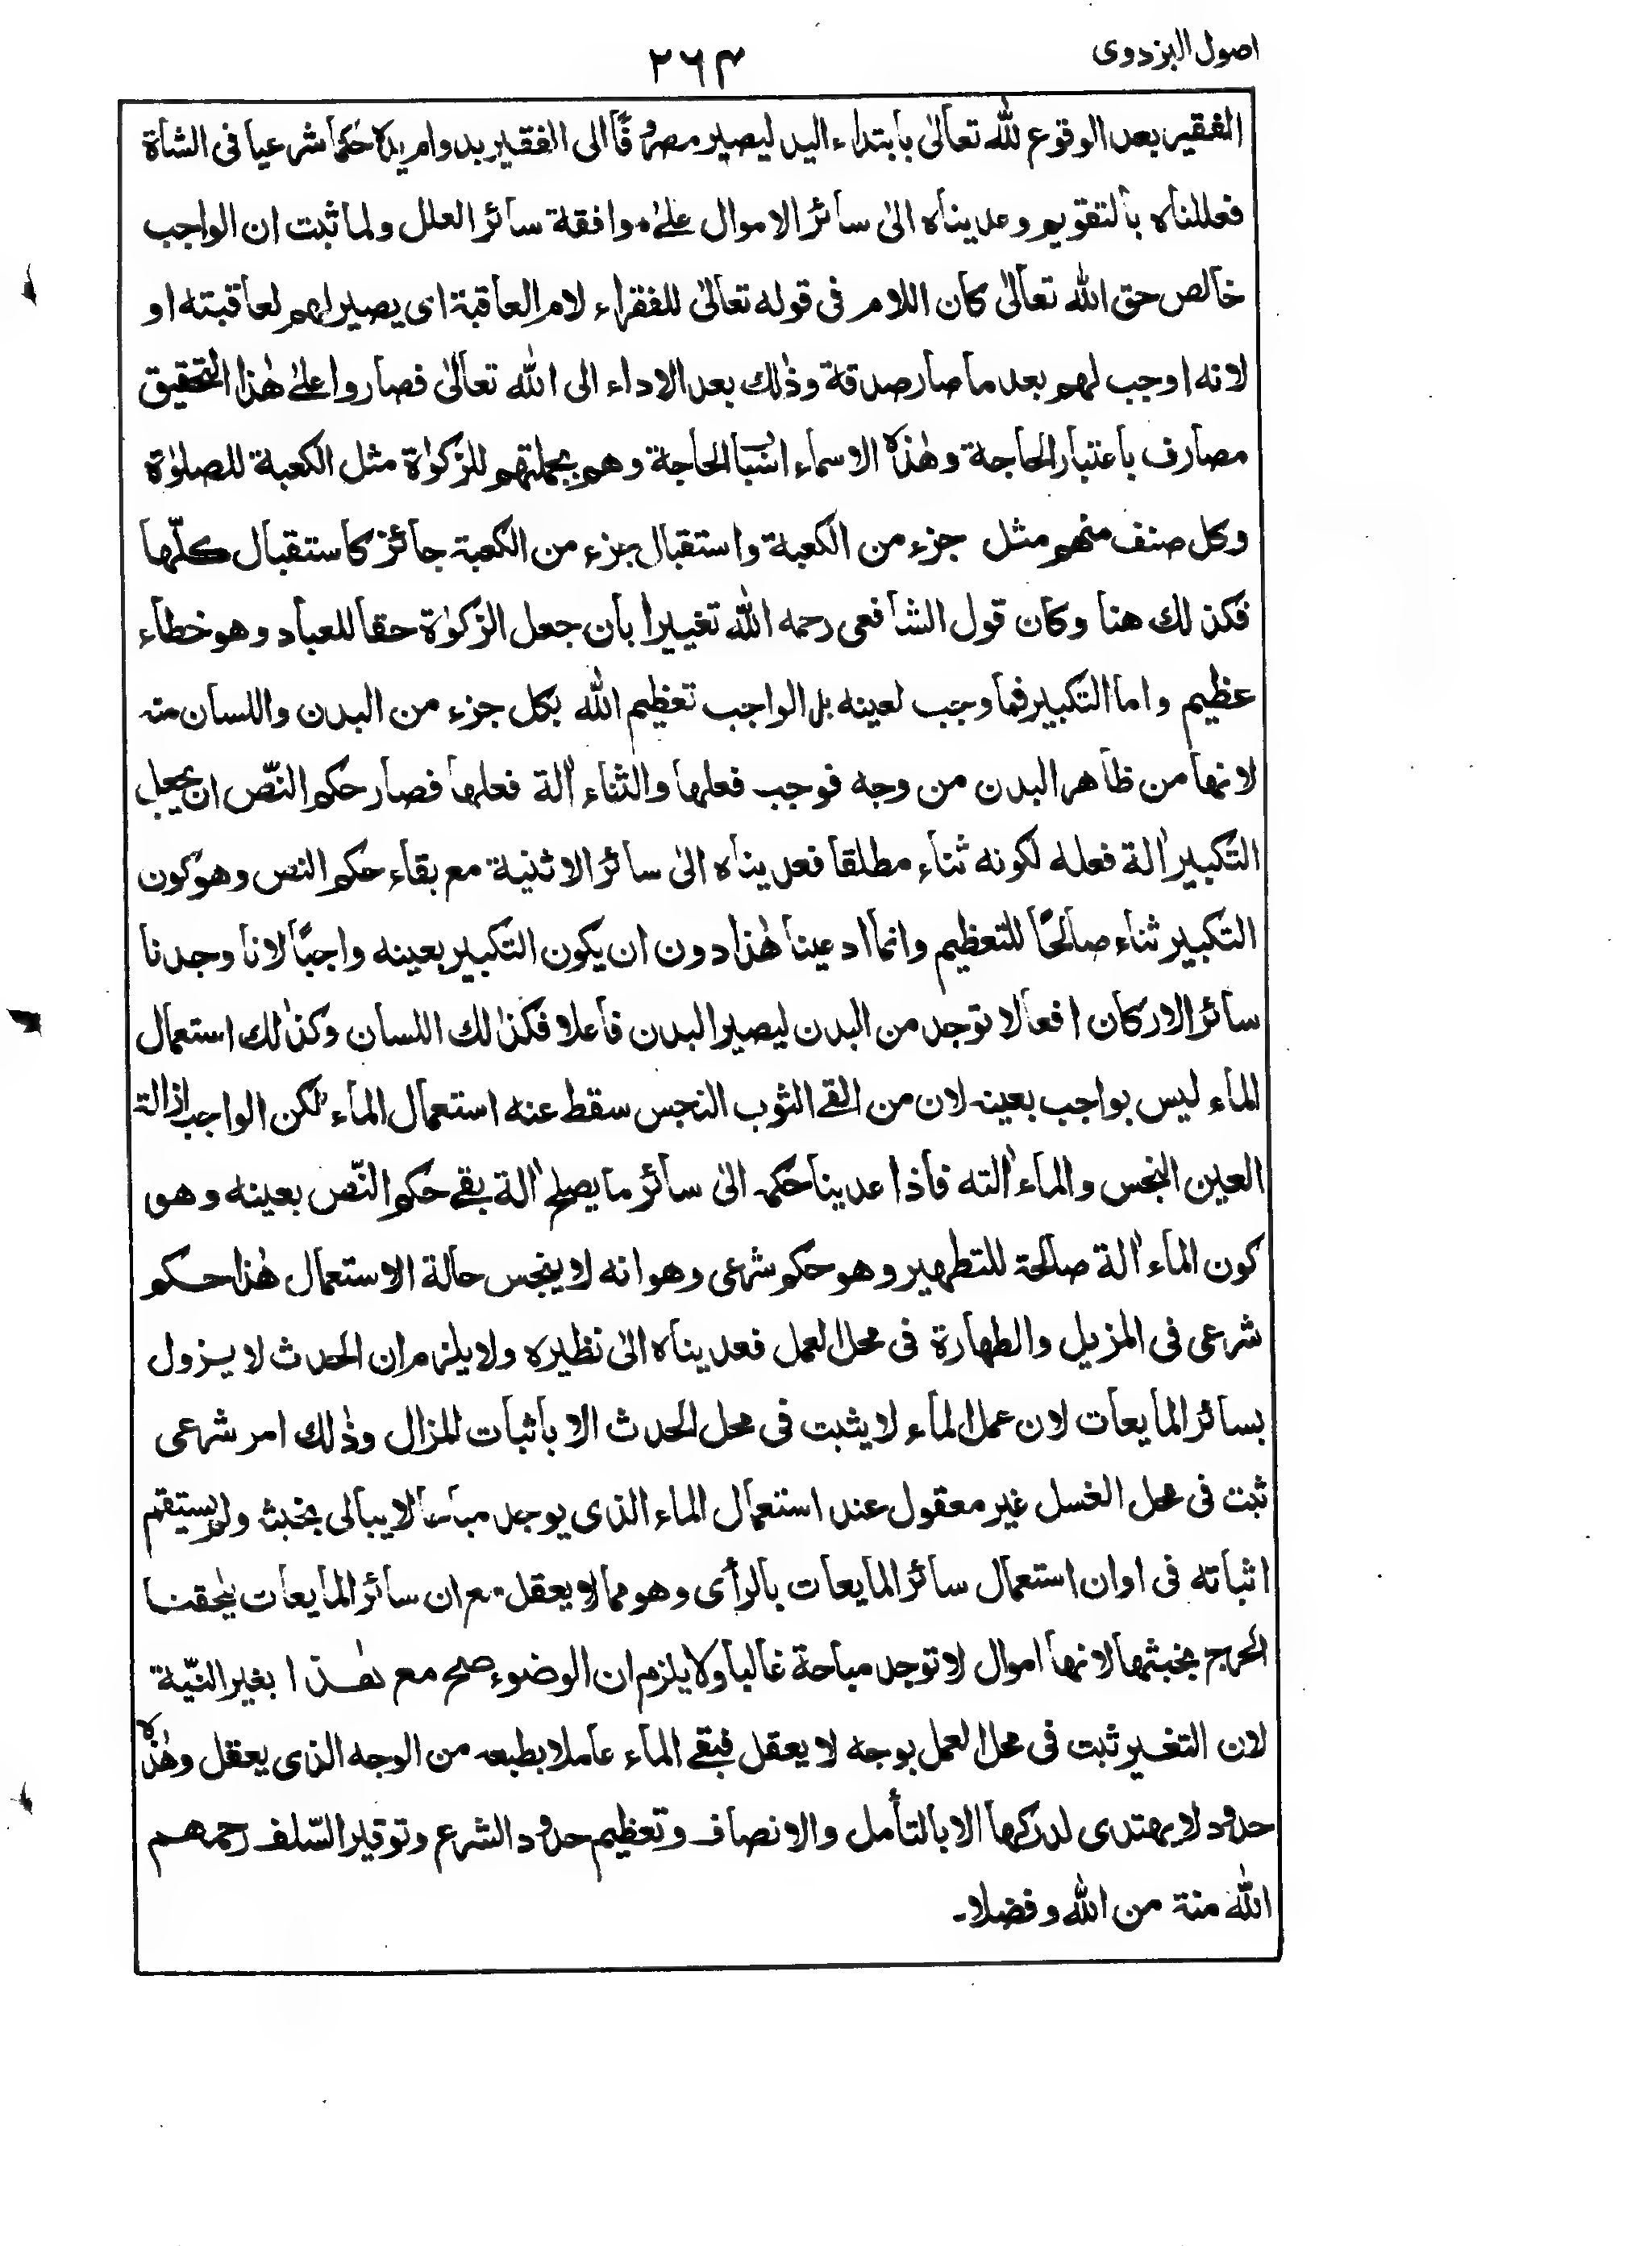 اصول البزدوی
۲۶۴
الفقیر بعد الوقوع لله تعالیٰ بابتداء الید لیصیر مصروفًا الی الفقیر بدوام یدہ حکما شرعیا فی الشاۃ
فعللناہ بالتقویم وعدیناہ الیٰ سائر الاموال علیٰ موافقة سائر العلل ولما ثبت ان الواجب
خالص حق الله تعالیٰ کان اللام فی قوله تعالیٰ للفقراء لام العاقبة ای یصیر لهم لعاقبته او
لانه اوجب لهم بعد ما صار صدقة وذٰلك بعد الاداء الی الله تعالیٰ فصاروا علیٰ هٰذا التحقیق
مصارف باعتبار الحاجة وهٰذہ الاسماء اسباب الحاجة وهم بجملتهم للزکوٰة مثل الکعبة للصلوٰة
وکل صنف منهم مثل جزء من الکعبة واستقبال جزء من الکعبة جائز کاستقبال کلّها
فکذلك هنا وکان قول الشافعی رحمه الله تغییرا بان جعل الزکوٰة حقا للعباد وهو خطاء
عظیم واما التکبیر فما وجب لعینه بل الواجب تعظیم الله بکل جزء من البدن واللسان منه
لانها من ظاهر البدن من وجه فوجب فعلها والثناء اٰلة فعلها فصار حکم النّص ان یجعل
التکبیر اٰلة فعله لکونه ثناء مطلقا فعدیناہ الیٰ سائر الاثنیة مع بقاء حکم النص وهو کون
التکبیر ثناء صالحًا للتعظیم وانما ادعینا هٰذا دون ان یکون التکبیر بعینه واجبًا لانا وجدنا
سائر الارکان افعالا توجد من البدن لیصیر البدن فاعلا فکذٰلك اللسان وکذٰلك استعمال
الماء لیس بواجب بعینه لان من القی الثوب النجس سقط عنه استعمال الماء لٰکن الواجب ازالة
العین النجس والماء اٰلته فاذا عدینا حکمه الیٰ سائر ما یصلح اٰلة بقے حکم النّص بعینه وهو
کون الماء اٰلة صالحة للتطهیر وهو حکم شرعی وهو انه لا ینجس حالة الاستعمال هٰذا حکم
شرعی فی المزیل والطهارة فی محل العمل فعدیناہ الیٰ نظیرہ ولا یلزم ان الحدث لا یزول
بسائر المایعات لان عمل الماء لا یثبت فی محل الحدث الا باثبات المزال وذٰلك امر شرعی
ثبت فی محل الغسل غیر معقول عند استعمال الماء الذی یوجد مباحا لا یبالی بخبثه ولم یستقم
اثباته فی اوان استعمال سائر المایعات بالرأی وهو مما لا یعقل مع ان سائر المایعات یلحقنا
الحرج بخبثها لانها اموال لا توجد مباحة غالبا ولا یلزم ان الوضوء صح مع هٰذا بغیر النیّة
لان التغیر ثبت فی محل العمل بوجه لا یعقل فبقے الماء عاملا بطبعه من الوجه الذی یعقل وهٰذہ
حدود لا یهتدی لدرکها الا بالتأمل والانصاف وتعظیم حدود الشرع وتوقیر السّلف رحمهم
الله منة من الله وفضلا۔